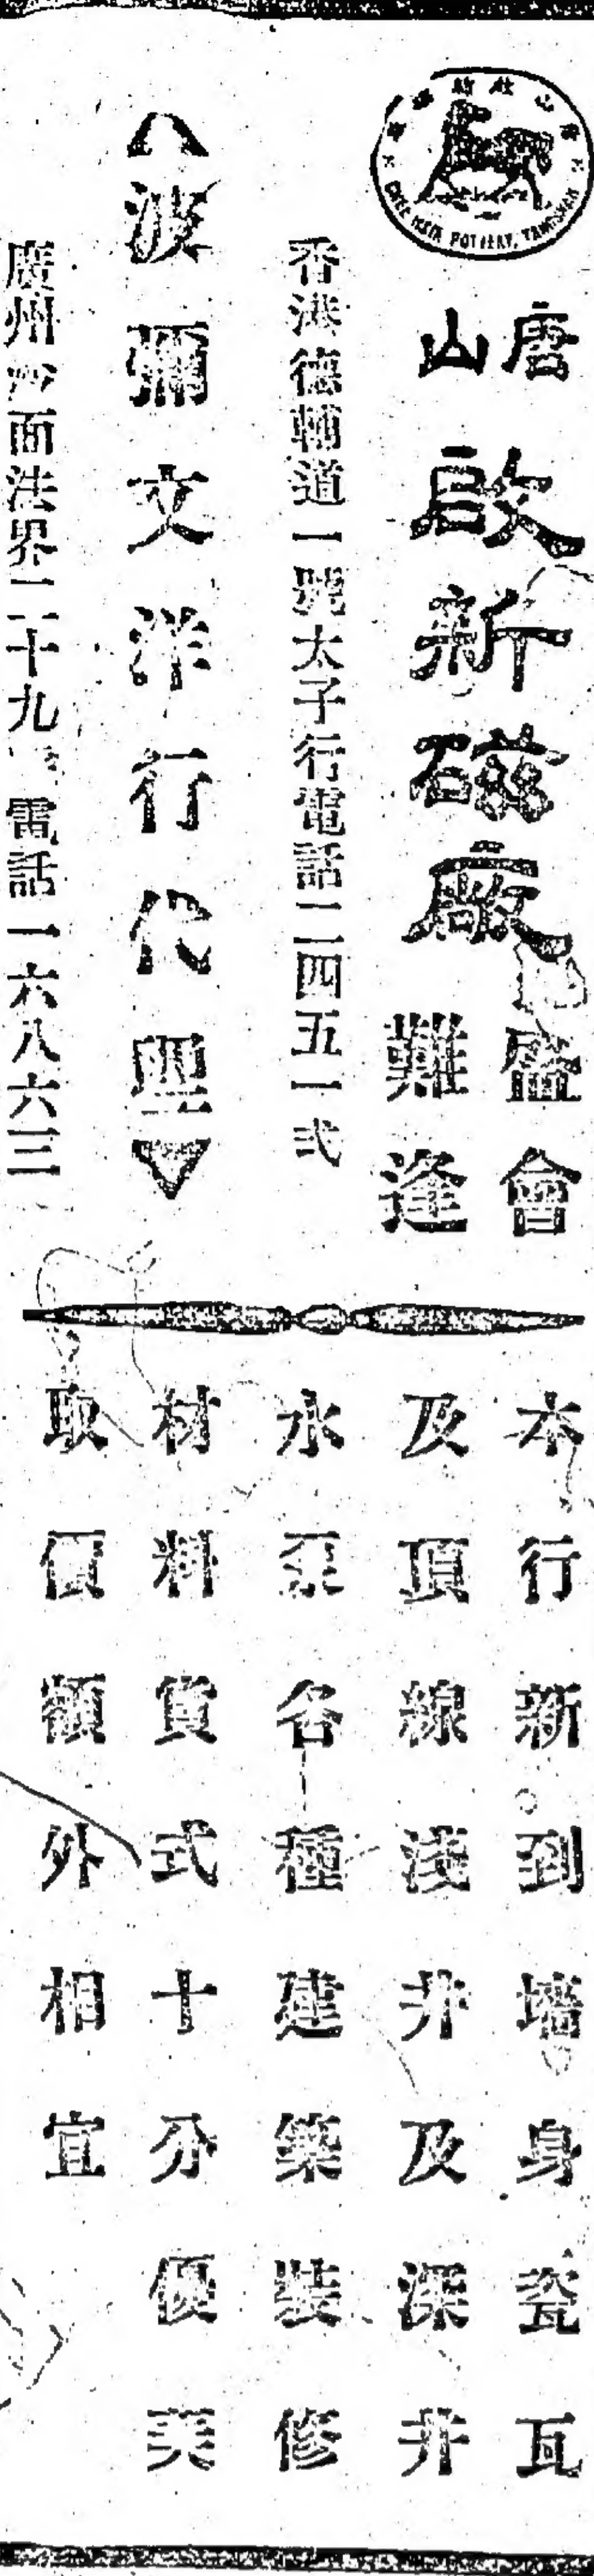 CHEE HSIN POTTERY, TANGSHAN
唐山啟新磁廠
盛會難逢
香港德輔道一號太子行電話二四五一弍
波彌文洋行代理
廣州沙面法界二十九 電話一六八六三
本行新到墻身瓷瓦
及頂線淺井及深井
水泵各種建築裝修
材料貨式十分優美
取價額外相宜